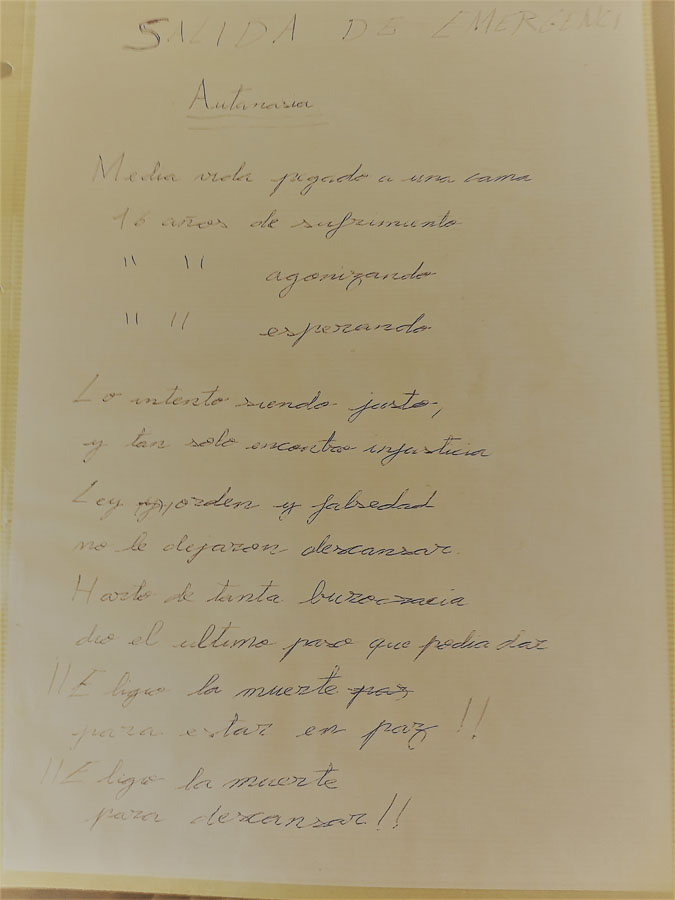 SALIDA DE EMERGENCI
Autanasia
Media vida pegado a una cama
16 años de sufrimiento
" " agonizando
" " esperando
Lo intento siendo justo,
y tan solo encontro injusticia
Ley y, orden y falsedad
no le dejaron descansar.
Harto de tanta burocracia
dio el ultimo paso que podia dar
!!Eligio la muerte paz
para estar en paz!!
!!Eligio la muerte
para descansar!!